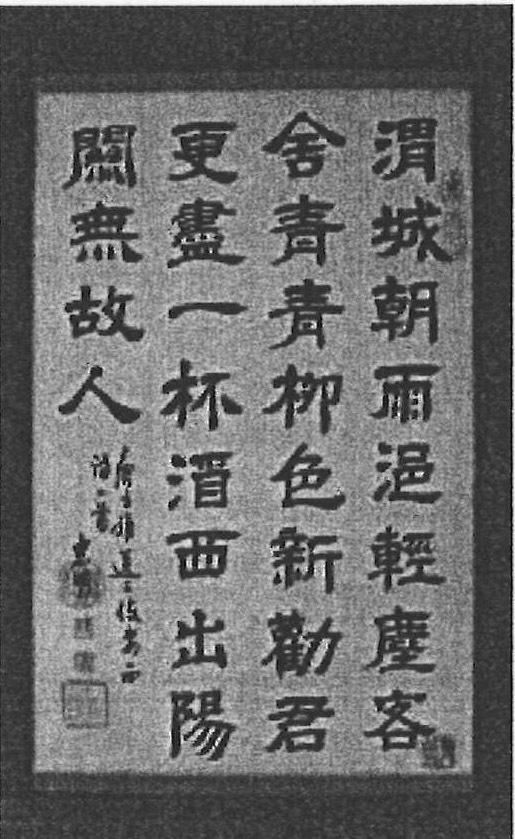 渭城朝雨浥輕塵客
舍青青柳色新勸君
更盡一杯酒西出陽
關無故人